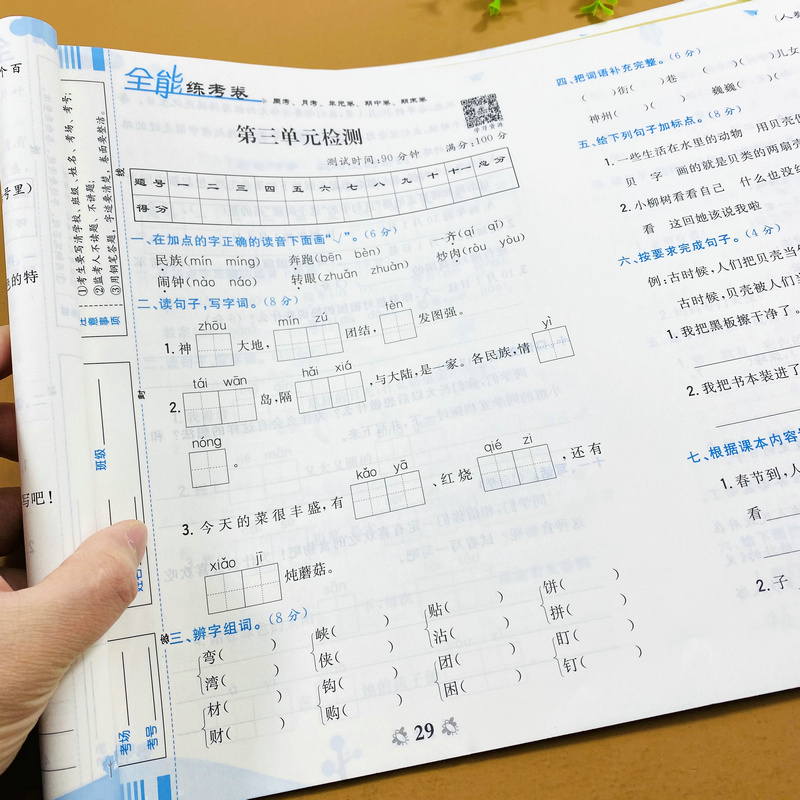 全能练考卷
周考、月考、单元卷、期中卷、期末卷
学习资源
第三单元检测
测试时间:90分钟 满分:100分
题号 一 二 三 四 五 六 七 八 九 十 十一 总分
得分
一、在加点的字正确的读音下面画“√”。(6分)
民族(mín míng) 奔跑(bēn bèn) 一齐(qí qǐ)
闹钟(nào náo) 转眼(zhuǎn zhuàn) 炒肉(ròu yòu)
二、读句子,写字词。(8分)
zhōu mín zú fèn
1. 神 大地, 团结, 发图强。
tái wān hǎi xiá yì
2. 岛,隔 ,与大陆,是一家。各民族,情
nóng
。
kǎo yā qié zi
3. 今天的菜很丰盛,有 、红烧 ,还有
xiǎo jī
炖蘑菇。
三、辨字组词。(8分)
弯( ) 峡( ) 贴( ) 饼( )
湾( ) 侠( ) 沾( ) 拼( )
材( ) 钩( ) 团( ) 盯( )
财( ) 购( ) 困( ) 钉( )
29
四、把词语补充完整。(6分)
( )街( )巷 ( )( )儿女
神州( )( ) 巍巍( )(
五、给下列句子加标点。(8分)
1. 一些生活在水里的动物 用贝壳
贝 字 画的就是贝类的两扇壳
2. 小柳树看看自己 什么也没结
看 这回她该说我啦
六、按要求完成句子。(4分)
例:古时候,人们把贝壳当
古时候,贝壳被人们当
1. 我把黑板擦干净了。
2. 我把书本装进了
七、根据课本内容
1. 春节到,人
看
2. 子
①考生要写清学校、班级、姓名、考场、考号;
②监考人不读题、不讲题;
③用钢笔答题,字迹要清楚,卷面要整洁。
注意事项
线
封
密
班级
姓名
考场
考号
个百
号里)
的特
写吧!